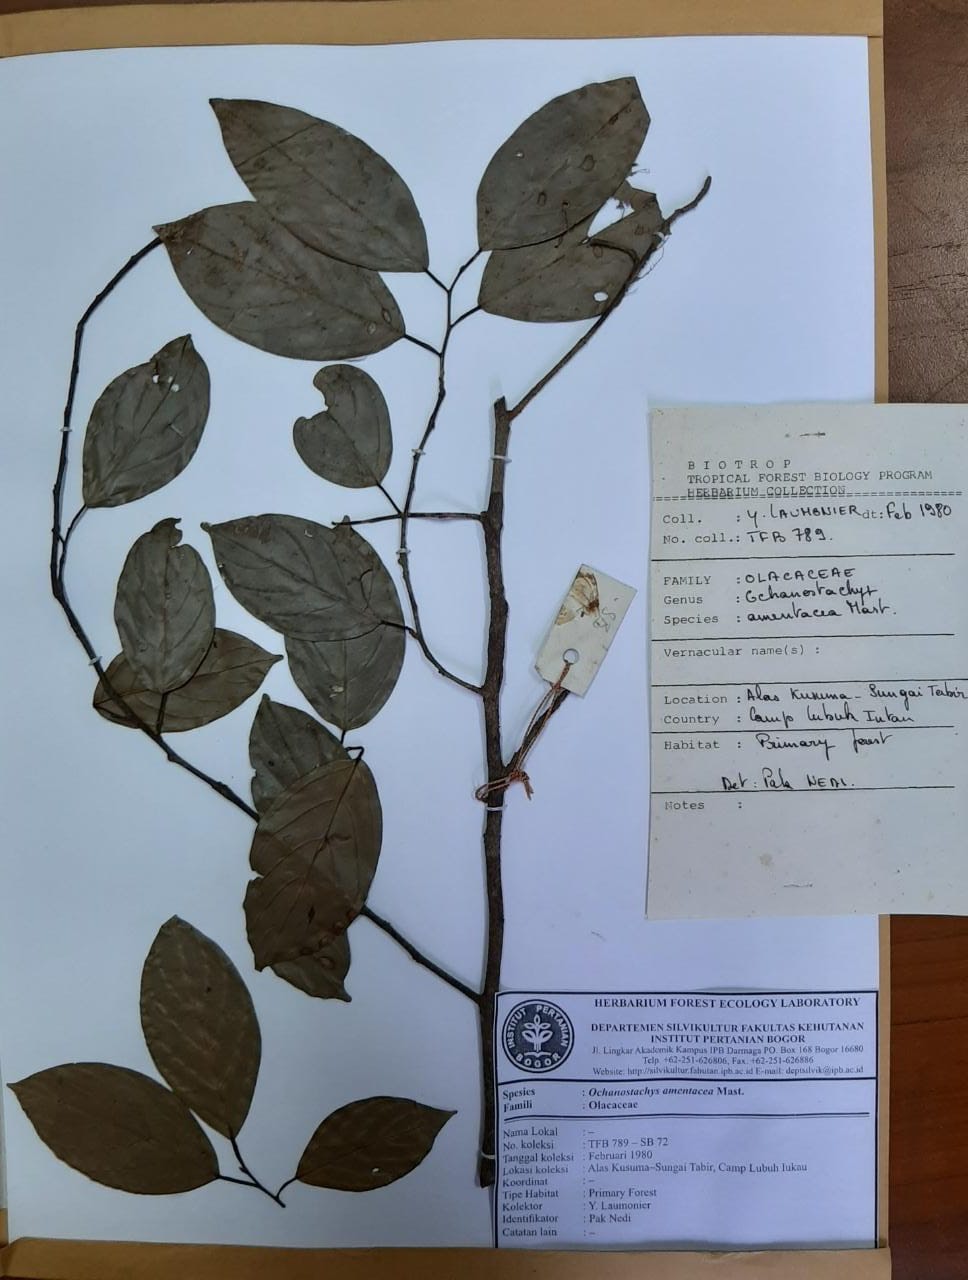 B I O T R O P
TROPICAL FOREST BIOLOGY PROGRAM
HERBARIUM COLLECTION
Coll. : Y. LAUMONIER dt: Feb 1980
No. coll.: TFB 789.
FAMILY : OLACACEAE
Genus : Ochanostachys
Species : amentacea Mast.
Vernacular name(s) :
Location : Alas Kusuma - Sungai Tabir
Country : Camp lubuk Intan
Habitat : Primary forest
Det : Pak NEDI.
Notes :
INSTITUT PERTANIAN
BOGOR
HERBARIUM FOREST ECOLOGY LABORATORY
DEPARTEMEN SILVIKULTUR FAKULTAS KEHUTANAN
INSTITUT PERTANIAN BOGOR
Jl. Lingkar Akademik Kampus IPB Darmaga PO. Box 168 Bogor 16680
Telp. +62-251-626806, Fax. +62-251-626886
Website: http://silvikultur.fahutan.ipb.ac.id E-mail: deptsilvik@ipb.ac.id
Spesies : Ochanostachys amentacea Mast.
Famili : Olacaceae
Nama Lokal : –
No. koleksi : TFB 789 – SB 72
Tanggal koleksi : Februari 1980
Lokasi koleksi : Alas Kusuma–Sungai Tabir, Camp Lubuh Iukau
Koordinat : –
Tipe Habitat : Primary Forest
Kolektor : Y. Laumonier
Identifikator : Pak Nedi
Catatan lain : –